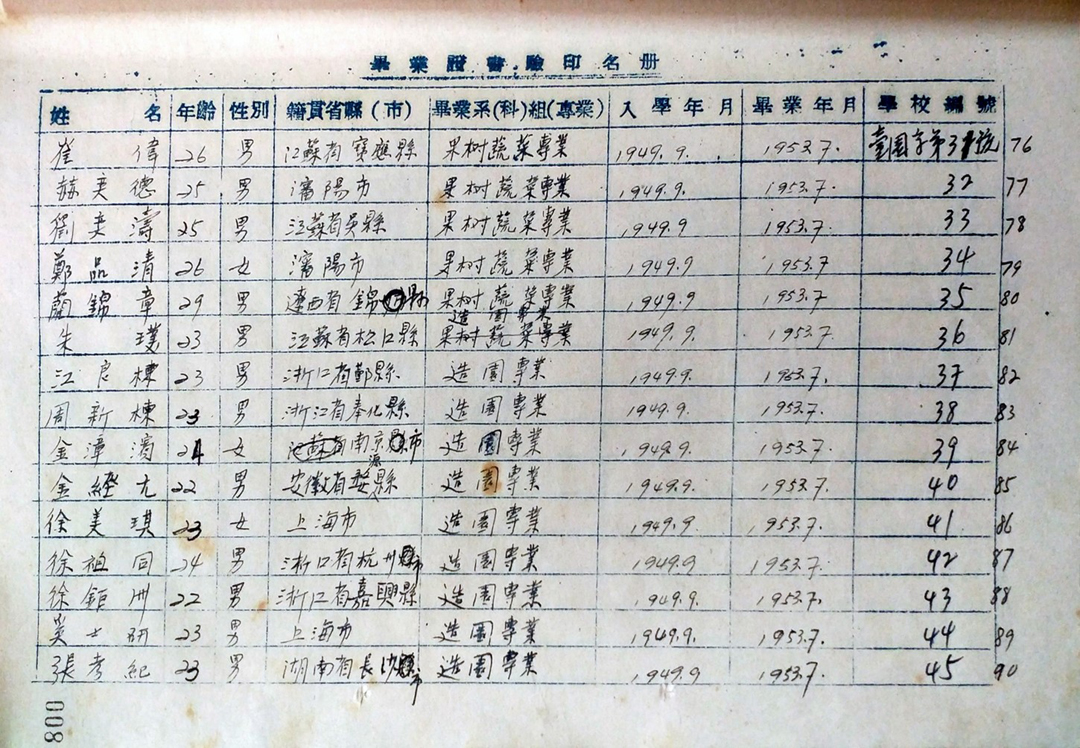 畢業證書驗印名册
姓名 年齡 性別 籍貫省縣(市) 畢業系(科)組(專業) 入學年月 畢業年月 學校編號
崔偉 26 男 江蘇省寶應縣 果树蔬菜專業 1949.9. 1953.7. 園字第31號 76
赫英德 25 男 瀋陽市 果树蔬菜專業 1949.9. 1953.7. 32 77
劉濤 25 男 江蘇省吳縣 果树蔬菜專業 1949.9 1953.7. 33 78
鄭品清 26 女 瀋陽市 果树蔬菜專業 1949.9 1953.7 34 79
蘭錦章 29 男 遼西省錦縣 果树蔬菜專業 1949.9 1953.7 35 80
造園專業
朱璞 23 男 江蘇省松江縣 果树蔬菜專業 1949.9. 1953.7. 36 81
江良棟 23 男 浙江省鄞縣 造園專業 1949.9. 1953.7. 37 82
周新棟 23 男 浙江省奉化縣 造園專業 1949.9. 1953.7. 38 83
金漳濱 24 女 江蘇省南京市 造園專業 1949.9. 1953.7. 39 84
源
金經尤 22 男 安徽省婺縣 造園專業 1949.9. 1953.7. 40 85
徐美琪 23 女 上海市 造園專業 1949.9. 1953.7. 41 86
徐祖同 24 男 浙江省杭州市 造園專業 1949.9 1953.7. 42 87
徐鉅洲 22 男 浙江省嘉興縣 造園專業 1949.9. 1953.7. 43 88
吳士研 23 男 上海市 造園專業 1949.9. 1953.7. 44 89
張孝紀 23 男 湖南省長沙市 造園專業 1949.9 1953.7. 45 90
008